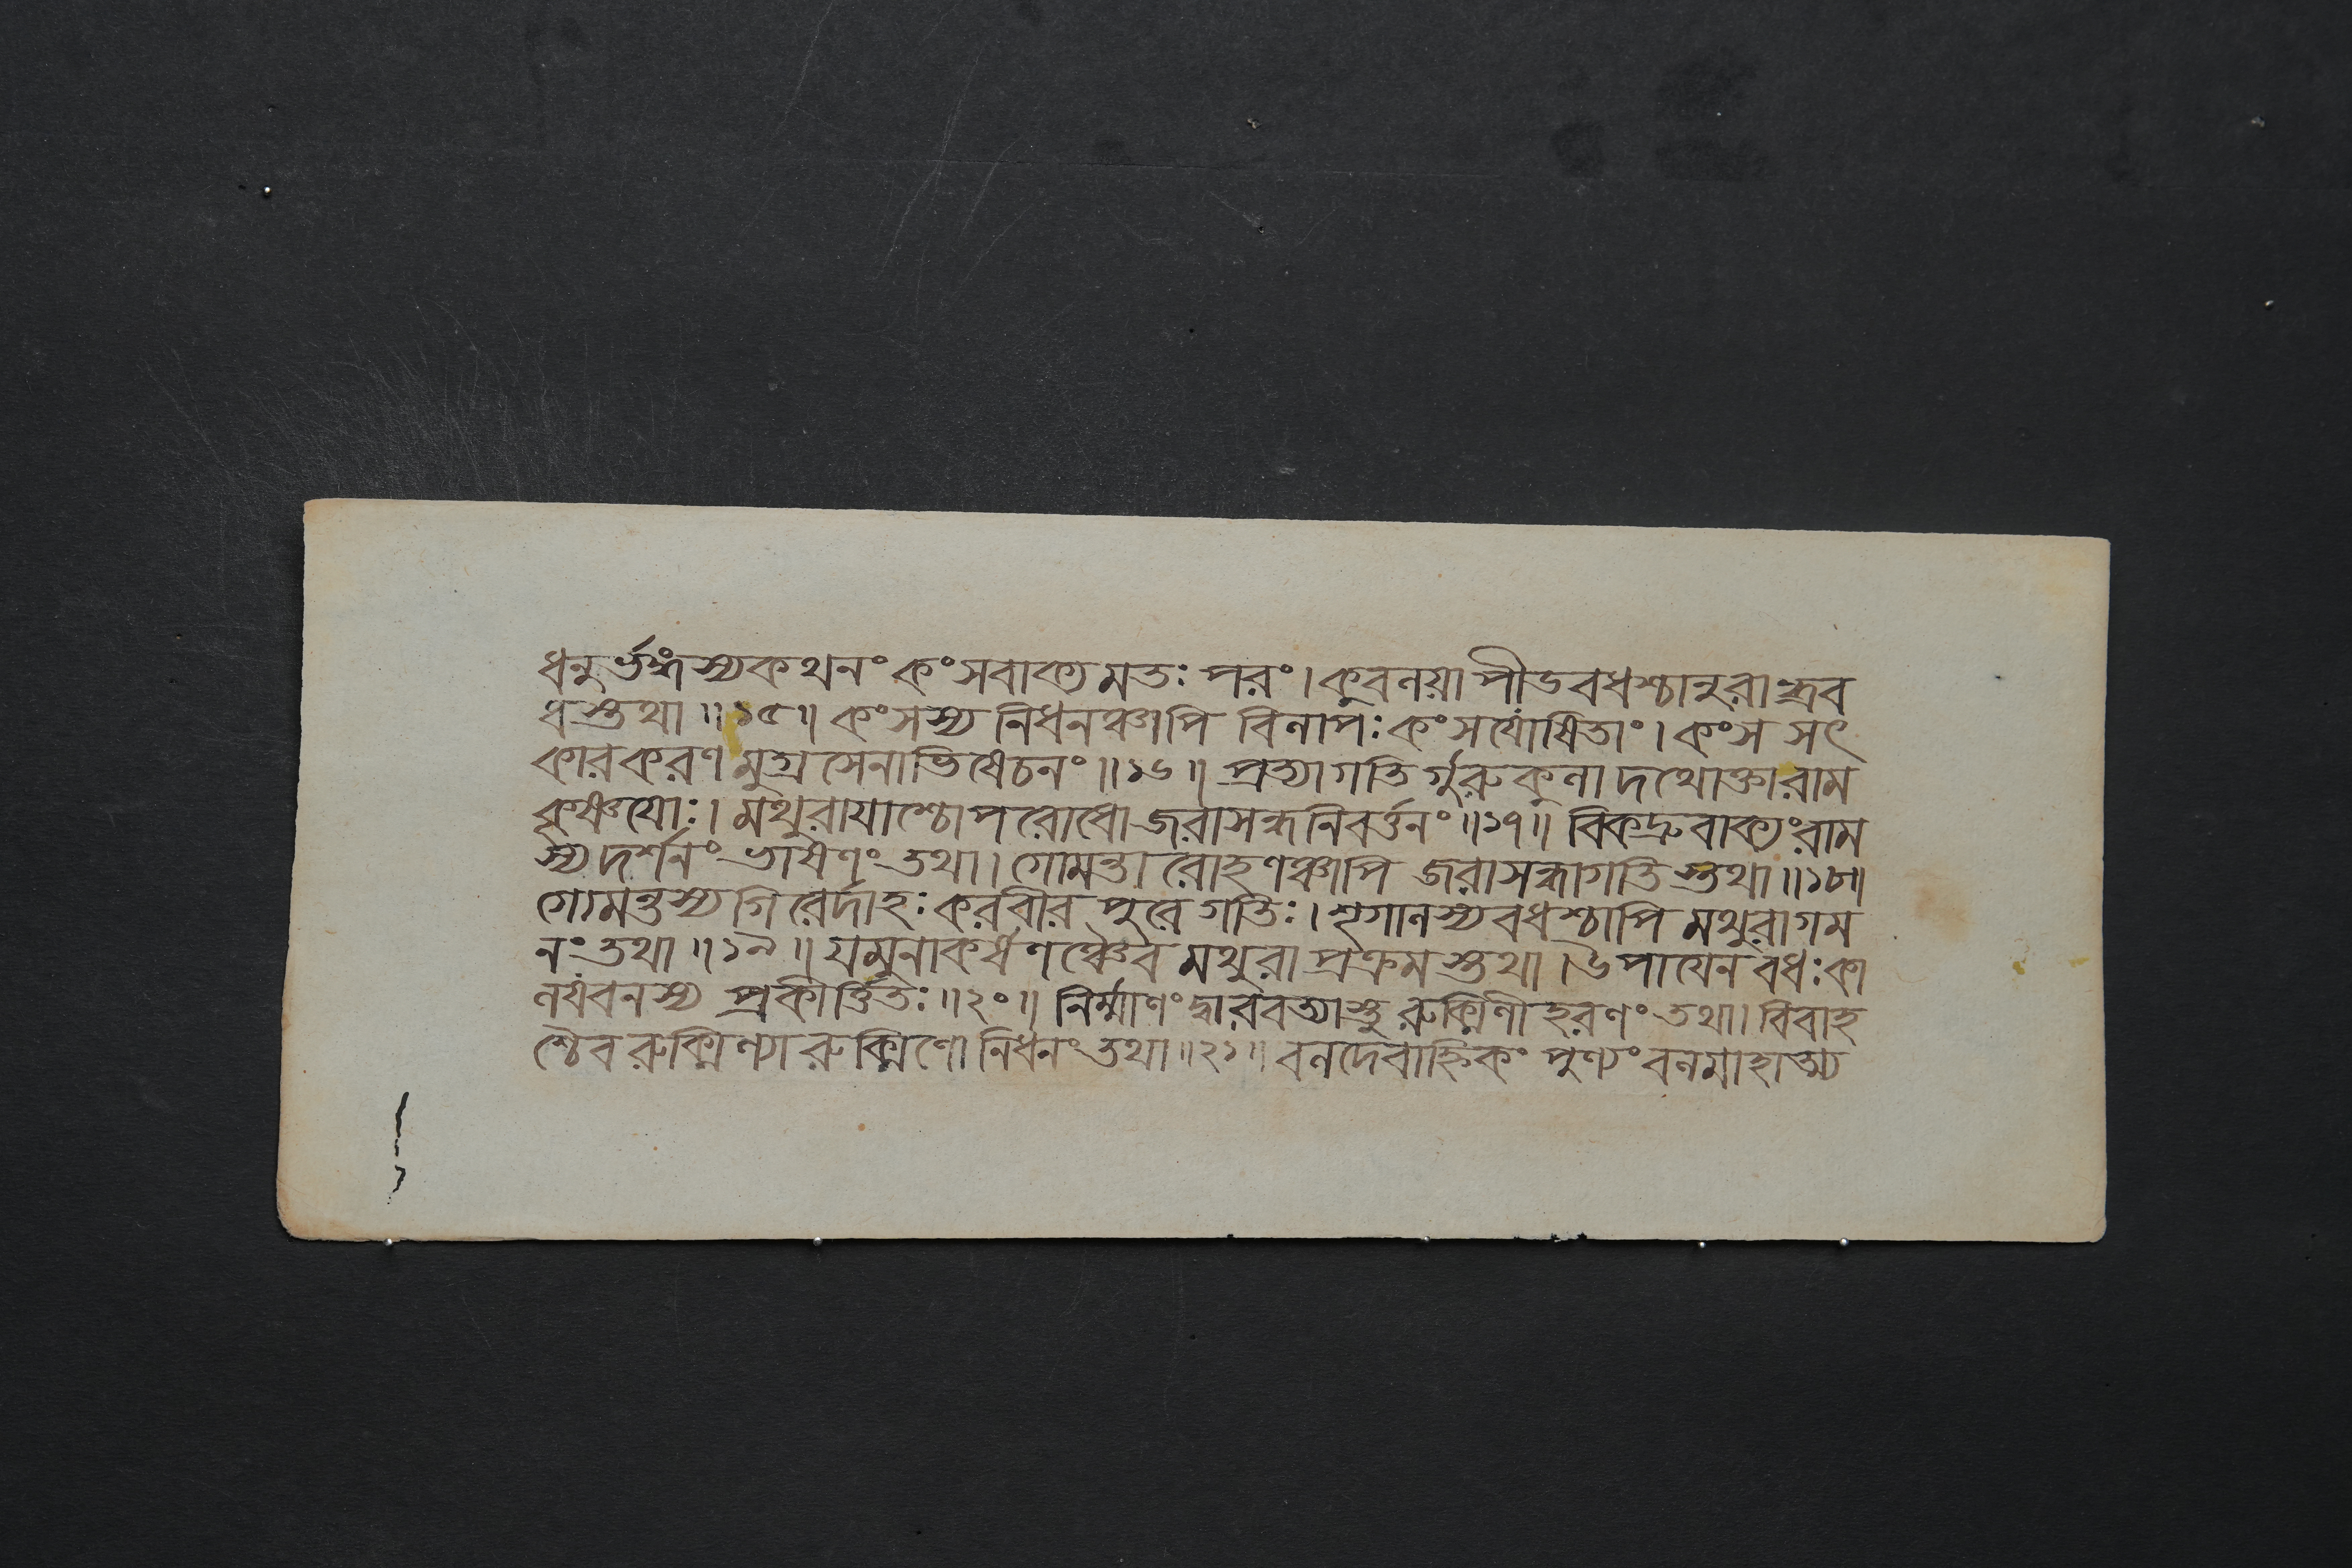 ধনুর্ভঙ্গস্যকথনং কংসবাক্যমতঃ পরং। কুবলয়াপীডবধশ্চানুরান্ধ্রব
ধস্তথা ॥১৫॥ কংসস্য নিধনঞ্চাপি বিলাপঃ কংসযোষিতাং। কংস সৎ
কারকরণমুগ্রসেনাভিষেচনং ॥১৬॥ প্রত্যাগতির্গুরুকুলাদথোক্তারাম
কৃষ্ণয়োঃ। মথুরায়াশ্চোপরোধো জরাসন্ধনিবর্ত্তনং ॥১৭॥ বিকদ্রুবাক্যংরাম
স্য দর্শনং ভাষণং তথা। গোমন্তারোহণঞ্চাপি জরাসন্ধাগতিস্তথা ॥১৮॥
গোমন্তস্যগিরের্দাহঃ করবীরপুরে গতিঃ। শৃগালস্যবধশ্চাপি মথুরাগম
নং তথা ॥১৯॥ যমুনাকর্ষণঞ্চৈব মথুরাপ্রক্রমস্তথা। উপায়েন বধঃ কা
লযবনস্য প্রকীর্ত্তিতঃ ॥২০॥ নির্ম্মাণং দ্বারবত্যাস্তু রুক্মিণীহরণং তথা। বিবাহ
শ্চৈব রুক্মিণ্যা রুক্মিণো নিধনং তথা ॥২১॥ বলদেবাহ্নিকং পুণ্যং বলমাহাত্ম্য